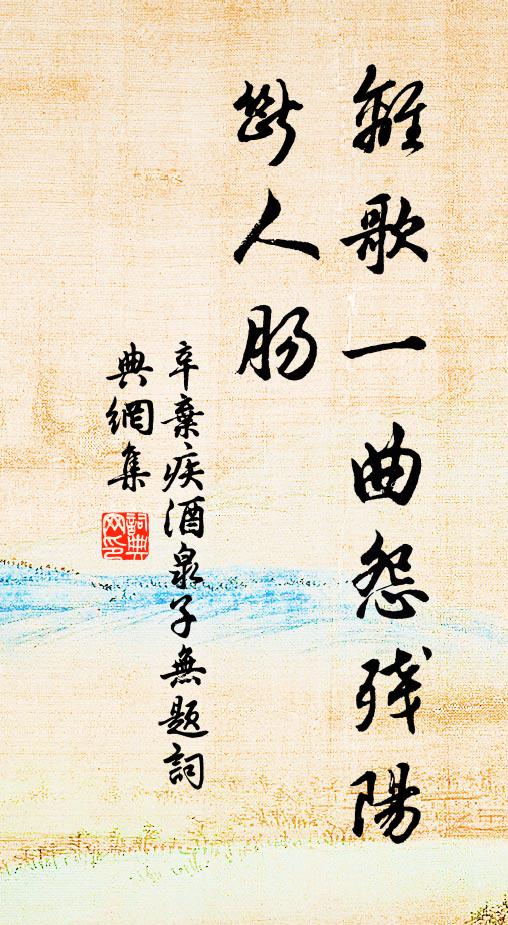 離歌一曲怨残陽
斷人肠
辛棄疾酒泉子無题詞
典網集
詞典
网印